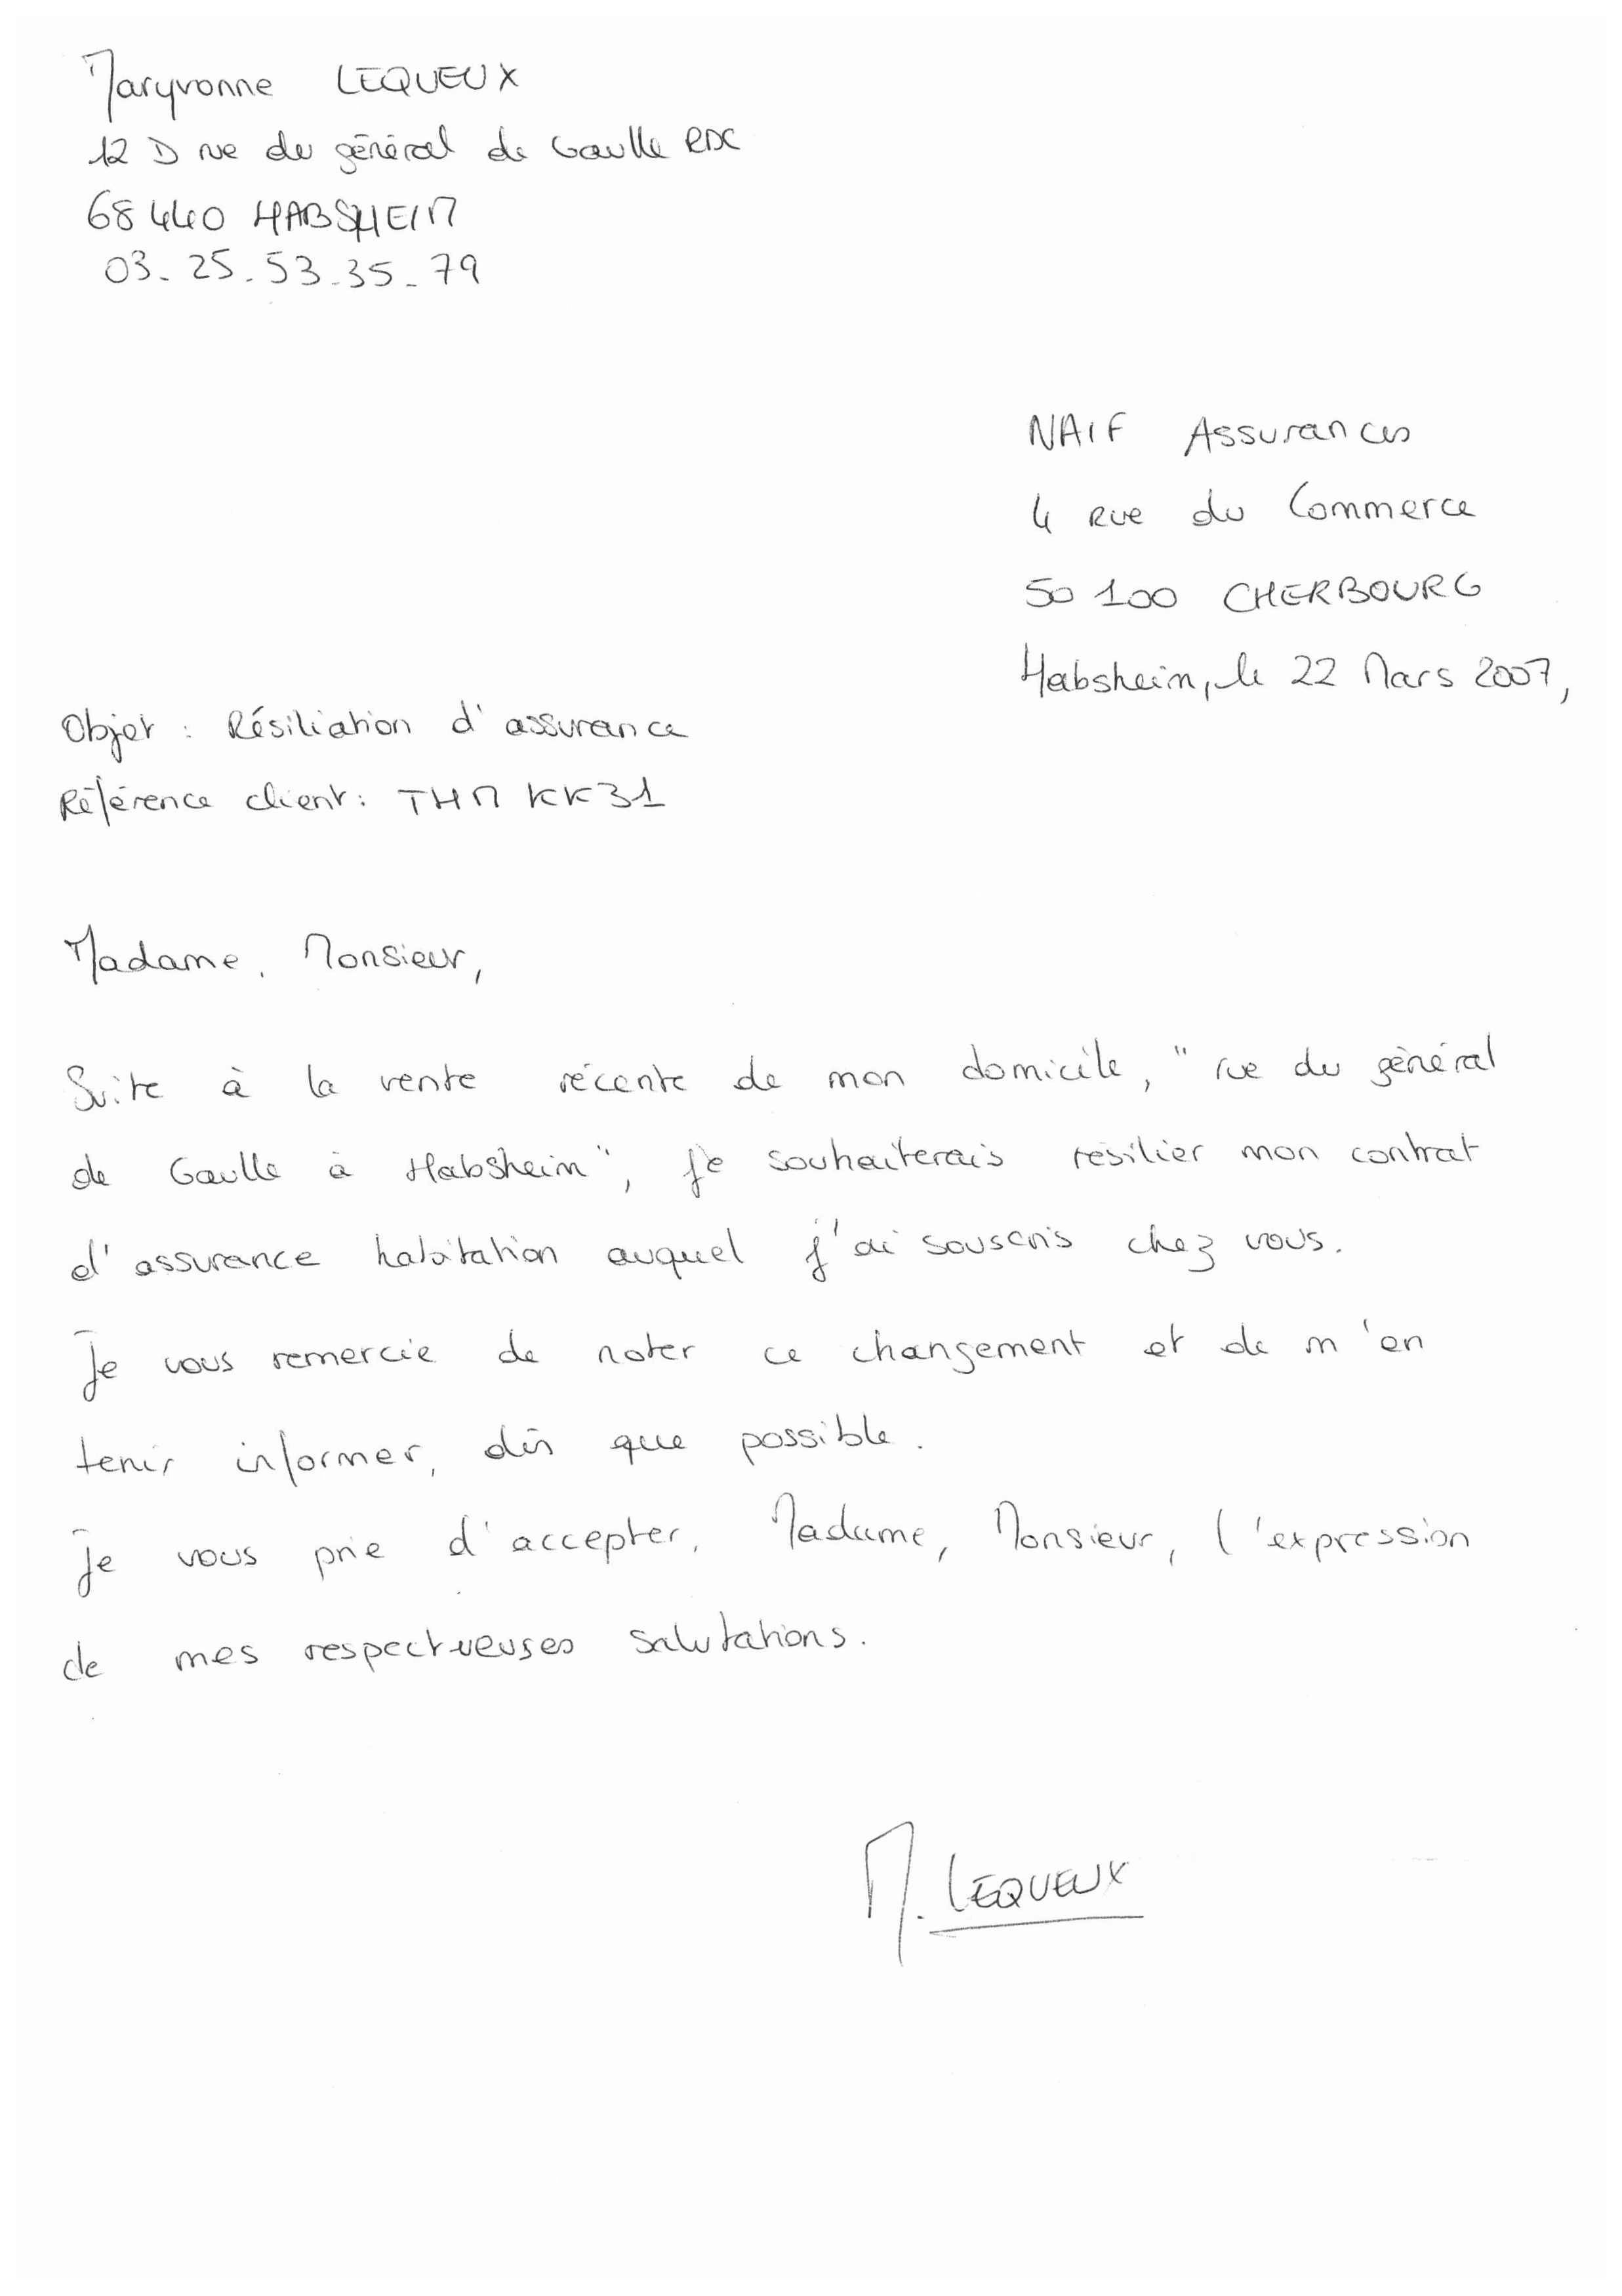 Maryvonne LEQUEUX
12 D rue du général de Gaulle RDC
68 440 HABSHEIM
03. 25. 53. 35. 79
NAIF Assurances
4 Rue du Commerce
50 100 CHERBOURG
Habsheim, le 22 Mars 2007,
Objet : Résiliation d'assurance
Référence client : THM KK31
Madame, Monsieur,
Suite à la vente récente de mon domicile, "rue du général
de Gaulle à Habsheim", je souhaiterais résilier mon contrat
d'assurance habitation auquel j'ai souscris chez vous.
Je vous remercie de noter ce changement et de m'en
tenir informer, dès que possible.
Je vous prie d'accepter, Madame, Monsieur, l'expression
de mes respectueuses salutations.
M. LEQUEUX